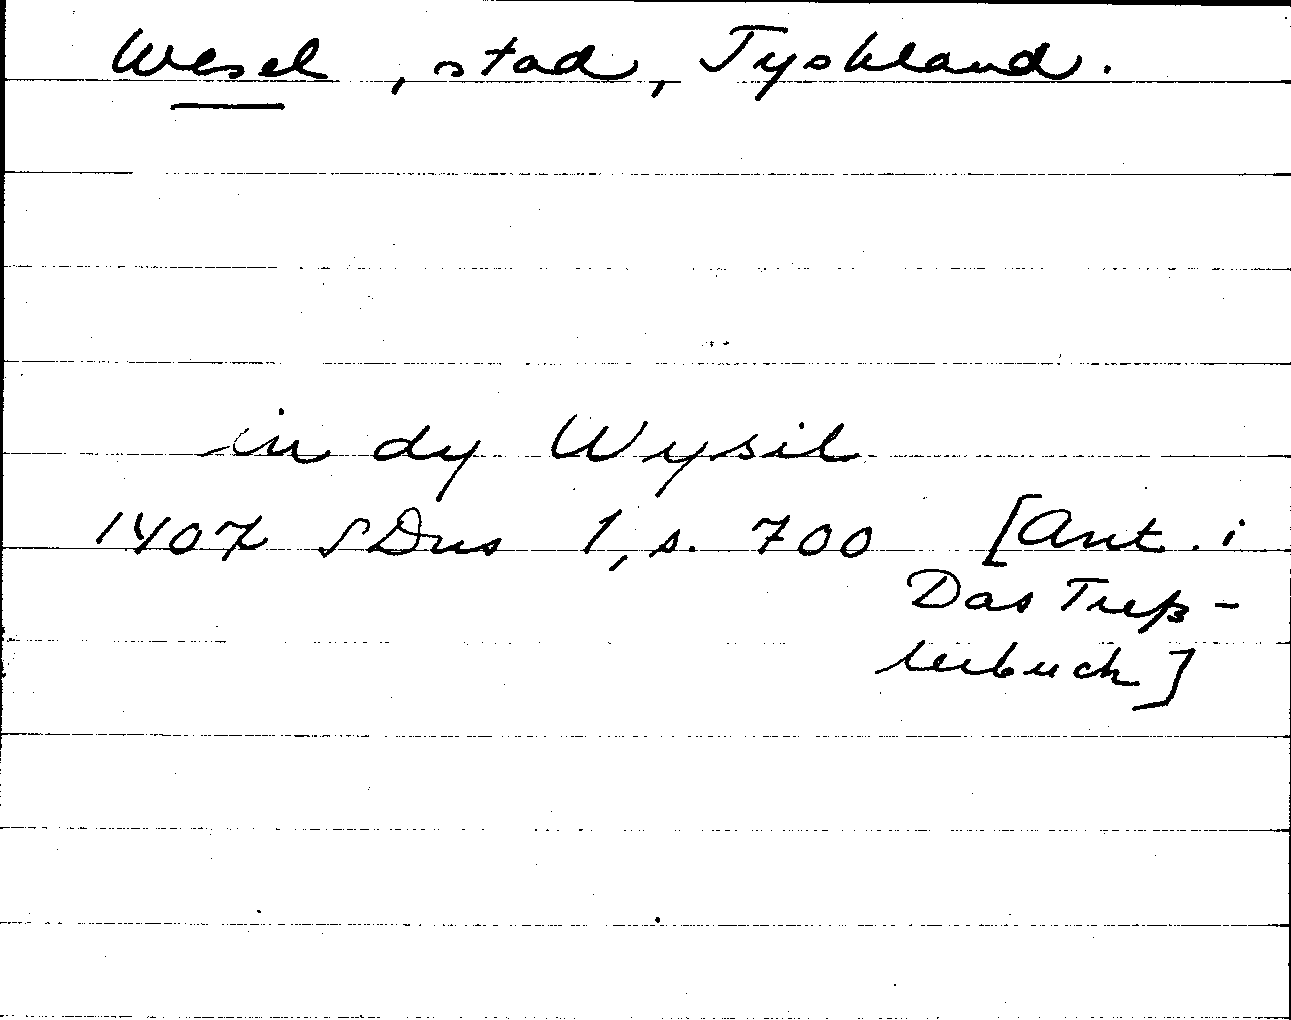 Wesel, stad, Tyskland.
in dy Wysil
1407 SDns 1, s. 700 [Ant. i
Das Treß-
lerbuch]